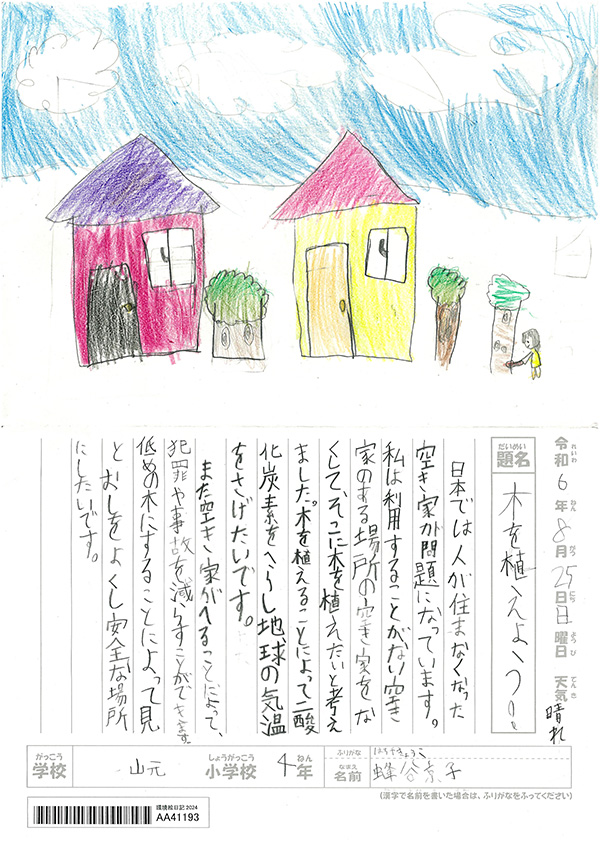 令和6年8月25日日曜日 天気 晴れ
れいわ ねん がつ にち よう び てん き
だいめい
題名 木を植えよう!!
日本では人が住まなくなった
空き家が問題になっています。
私は利用することがない空き
家のある場所の空き家をな
くして、そこに木を植えたいと考え
ました。木を植えることによって二酸
化炭素をへらし地球の気温
をさげたいです。
また空き家がへることによって、
犯罪や事故を減らすことができます。
低めの木にすることによって見
とおしをよくし安全な場所
にしたいです。
がっこう しょうがっこう ねん
学校 山元 小学校 4年
ふりがな はちやきょうこ
なまえ
名前 蜂谷京子
(漢字で名前を書いた場合は、ふりがなをふってください)
環境絵日記2024
AA41193